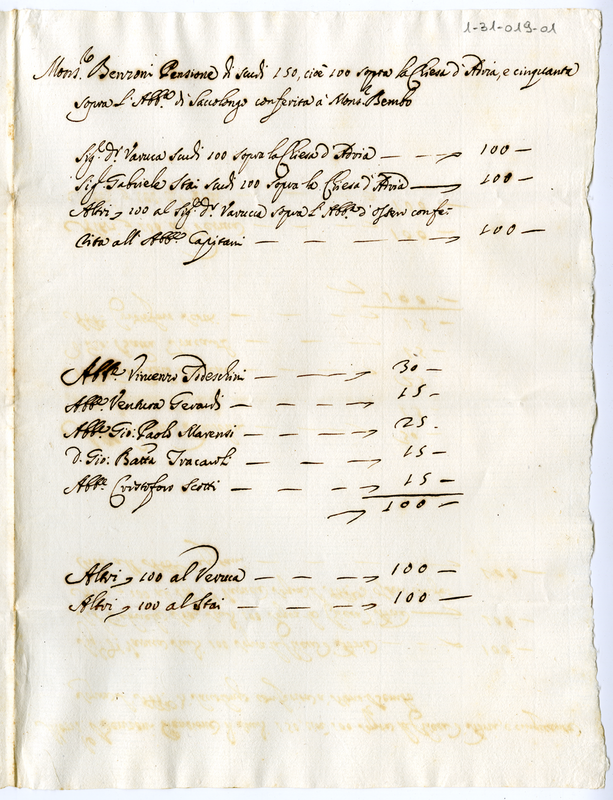 1-31-019-01
Mons.r Benzoni Pensione di scudi 150, cioè 100 sopra la Chiesa d'Adria, e cinquanta
sopra l'Abb.a di Saccolongo conferita à Mons.r Bembo
Sig.r D.r Varuca scudi 100 sopra la Chiesa d'Adria — 100 —
Sig.r Gabriele Stai scudi 100 sopra la Chiesa d'Adria — 100 —
Altri 100 al Sig.r D.r Varucca sopra l'Abb.a d' confe-
rita all'Abb.e Capitani — — — — 100 —
Abb.e Vincenzo Todeschini — — 30 —
Abb.e Ventura Gerardi — — — 15 —
Abb.e Gio: Paolo Marensi — — — 25 -
D. Gio: Batta — — — 15 —
Abb.e Cristoforo Scotti — — — 15 —
100 —
Altri 100 al Veruca — — — 100 —
Altri 100 al Stai — — — 100 —